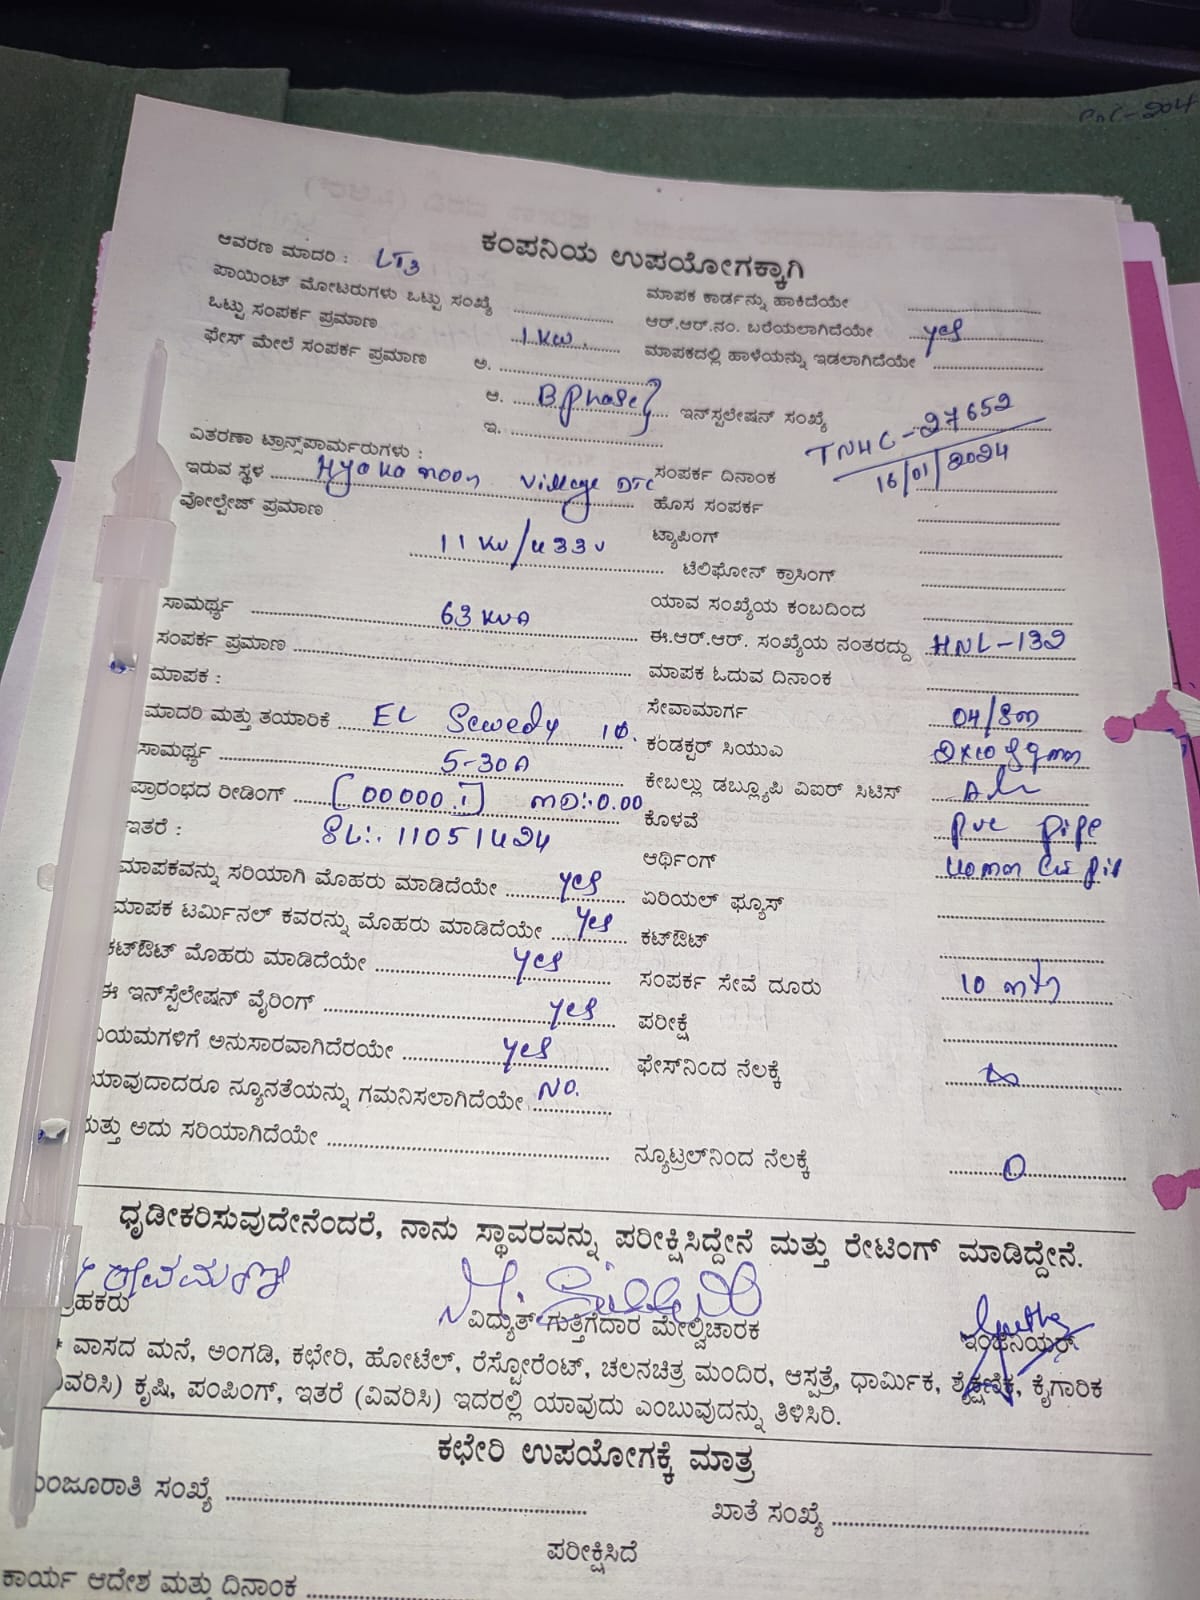 ಕಂಪನಿಯ ಉಪಯೋಗಕ್ಕಾಗಿ
ಆವರಣ ಮಾದರಿ : LT3
ಪಾಯಿಂಟ್ ಮೋಟರುಗಳು ಒಟ್ಟು ಸಂಖ್ಯೆ
ಒಟ್ಟು ಸಂಪರ್ಕ ಪ್ರಮಾಣ 1 KW.
ಫೇಸ್ ಮೇಲೆ ಸಂಪರ್ಕ ಪ್ರಮಾಣ ಅ.
ಆ. B phase
ಇ.
ವಿತರಣಾ ಟ್ರಾನ್ಸ್‌ಪಾರ್ಮರುಗಳು :
ಇರುವ ಸ್ಥಳ Village DTC
ವೋಲ್ಟೇಜ್ ಪ್ರಮಾಣ
11 KV/433V
ಸಾಮರ್ಥ್ಯ 63 KVA
ಸಂಪರ್ಕ ಪ್ರಮಾಣ
ಮಾಪಕ :
ಮಾದರಿ ಮತ್ತು ತಯಾರಿಕೆ EL Sewedy 1Φ.
ಸಾಮರ್ಥ್ಯ 5-30A
ಪ್ರಾರಂಭದ ರೀಡಿಂಗ್ [00000.1] MD:.0.00
ಇತರೆ : SL:. 11051424
ಮಾಪಕವನ್ನು ಸರಿಯಾಗಿ ಮೊಹರು ಮಾಡಿದೆಯೇ yes
ಮಾಪಕ ಟರ್ಮಿನಲ್ ಕವರನ್ನು ಮೊಹರು ಮಾಡಿದೆಯೇ yes
ಕಟ್‌ಔಟ್ ಮೊಹರು ಮಾಡಿದೆಯೇ yes
ಈ ಇನ್‌ಸ್ಪೆಲೇಷನ್ ವೈರಿಂಗ್ yes
ಯಮಗಳಿಗೆ ಅನುಸಾರವಾಗಿದೆರಯೇ yes
ಯಾವುದಾದರೂ ನ್ಯೂನತೆಯನ್ನು ಗಮನಿಸಲಾಗಿದೆಯೇ NO.
ಮತ್ತು ಅದು ಸರಿಯಾಗಿದೆಯೇ
ಮಾಪಕ ಕಾರ್ಡನ್ನು ಹಾಕಿದೆಯೇ
ಆರ್.ಆರ್.ನಂ. ಬರೆಯಲಾಗಿದೆಯೇ yes
ಮಾಪಕದಲ್ಲಿ ಹಾಳೆಯನ್ನು ಇಡಲಾಗಿದೆಯೇ
ಇನ್‌ಸ್ಪಲೇಷನ್ ಸಂಖ್ಯೆ TNHL-27652
ಸಂಪರ್ಕ ದಿನಾಂಕ 16/01/2024
ಹೊಸ ಸಂಪರ್ಕ
ಟ್ಯಾಪಿಂಗ್
ಟೆಲಿಫೋನ್ ಕ್ರಾಸಿಂಗ್
ಯಾವ ಸಂಖ್ಯೆಯ ಕಂಬದಿಂದ
ಈ.ಆರ್.ಆರ್. ಸಂಖ್ಯೆಯ ನಂತರದ್ದು HNL-132
ಮಾಪಕ ಓದುವ ದಿನಾಂಕ
ಸೇವಾಮಾರ್ಗ
ಕಂಡಕ್ಟರ್ ಸಿಯುಎ
ಕೇಬಲ್ಲು ಡಬ್ಲ್ಯೂಪಿ ವಿಐಆರ್ ಸಿಟಿಸ್
ಕೊಳವೆ pvc pipe
ಆರ್ಥಿಂಗ್
ಏರಿಯಲ್ ಫ್ಯೂಸ್
ಕಟ್‌ಔಟ್
ಸಂಪರ್ಕ ಸೇವೆ ದೂರು 10 mtr
ಪರೀಕ್ಷೆ
ಫೇಸ್‌ನಿಂದ ನೆಲಕ್ಕೆ ∞
ನ್ಯೂಟ್ರಲ್‌ನಿಂದ ನೆಲಕ್ಕೆ 0
ಧೃಡೀಕರಿಸುವುದೇನೆಂದರೆ, ನಾನು ಸ್ಥಾವರವನ್ನು ಪರೀಕ್ಷಿಸಿದ್ದೇನೆ ಮತ್ತು ರೇಟಿಂಗ್ ಮಾಡಿದ್ದೇನೆ.
ಗ್ರಾಹಕರು ವಿದ್ಯುತ್ ಗುತ್ತಿಗೆದಾರ ಮೇಲ್ವಿಚಾರಕ ಇಂಜಿನಿಯರ್
* ವಾಸದ ಮನೆ, ಅಂಗಡಿ, ಕಛೇರಿ, ಹೋಟೆಲ್, ರೆಸ್ಟೋರೆಂಟ್, ಚಲನಚಿತ್ರ ಮಂದಿರ, ಆಸ್ಪತ್ರೆ, ಧಾರ್ಮಿಕ, ಶೈಕ್ಷಣಿಕ, ಕೈಗಾರಿಕ
(ವಿವರಿಸಿ) ಕೃಷಿ, ಪಂಪಿಂಗ್, ಇತರೆ (ವಿವರಿಸಿ) ಇದರಲ್ಲಿ ಯಾವುದು ಎಂಬುವುದನ್ನು ತಿಳಿಸಿರಿ.
ಕಛೇರಿ ಉಪಯೋಗಕ್ಕೆ ಮಾತ್ರ
ಮಂಜೂರಾತಿ ಸಂಖ್ಯೆ ಖಾತೆ ಸಂಖ್ಯೆ
ಪರೀಕ್ಷಿಸಿದೆ
ಕಾರ್ಯ ಆದೇಶ ಮತ್ತು ದಿನಾಂಕ